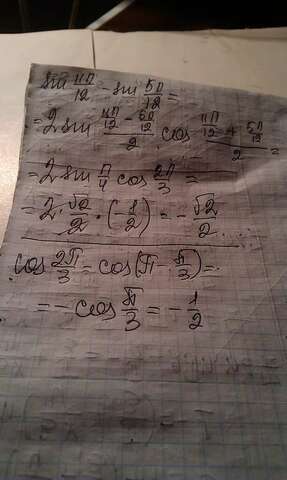 sin 11π/12 - sin 5π/12 =
= 2 sin (11π/12 - 5π/12)/2 · cos (11π/12 + 5π/12)/2 =
= 2 sin π/4 cos 2π/3 =
= 2 · √2/2 · (-1/2) = - √2/2 .
cos 2π/3 = cos(π - π/3) =
= - cos π/3 = - 1/2